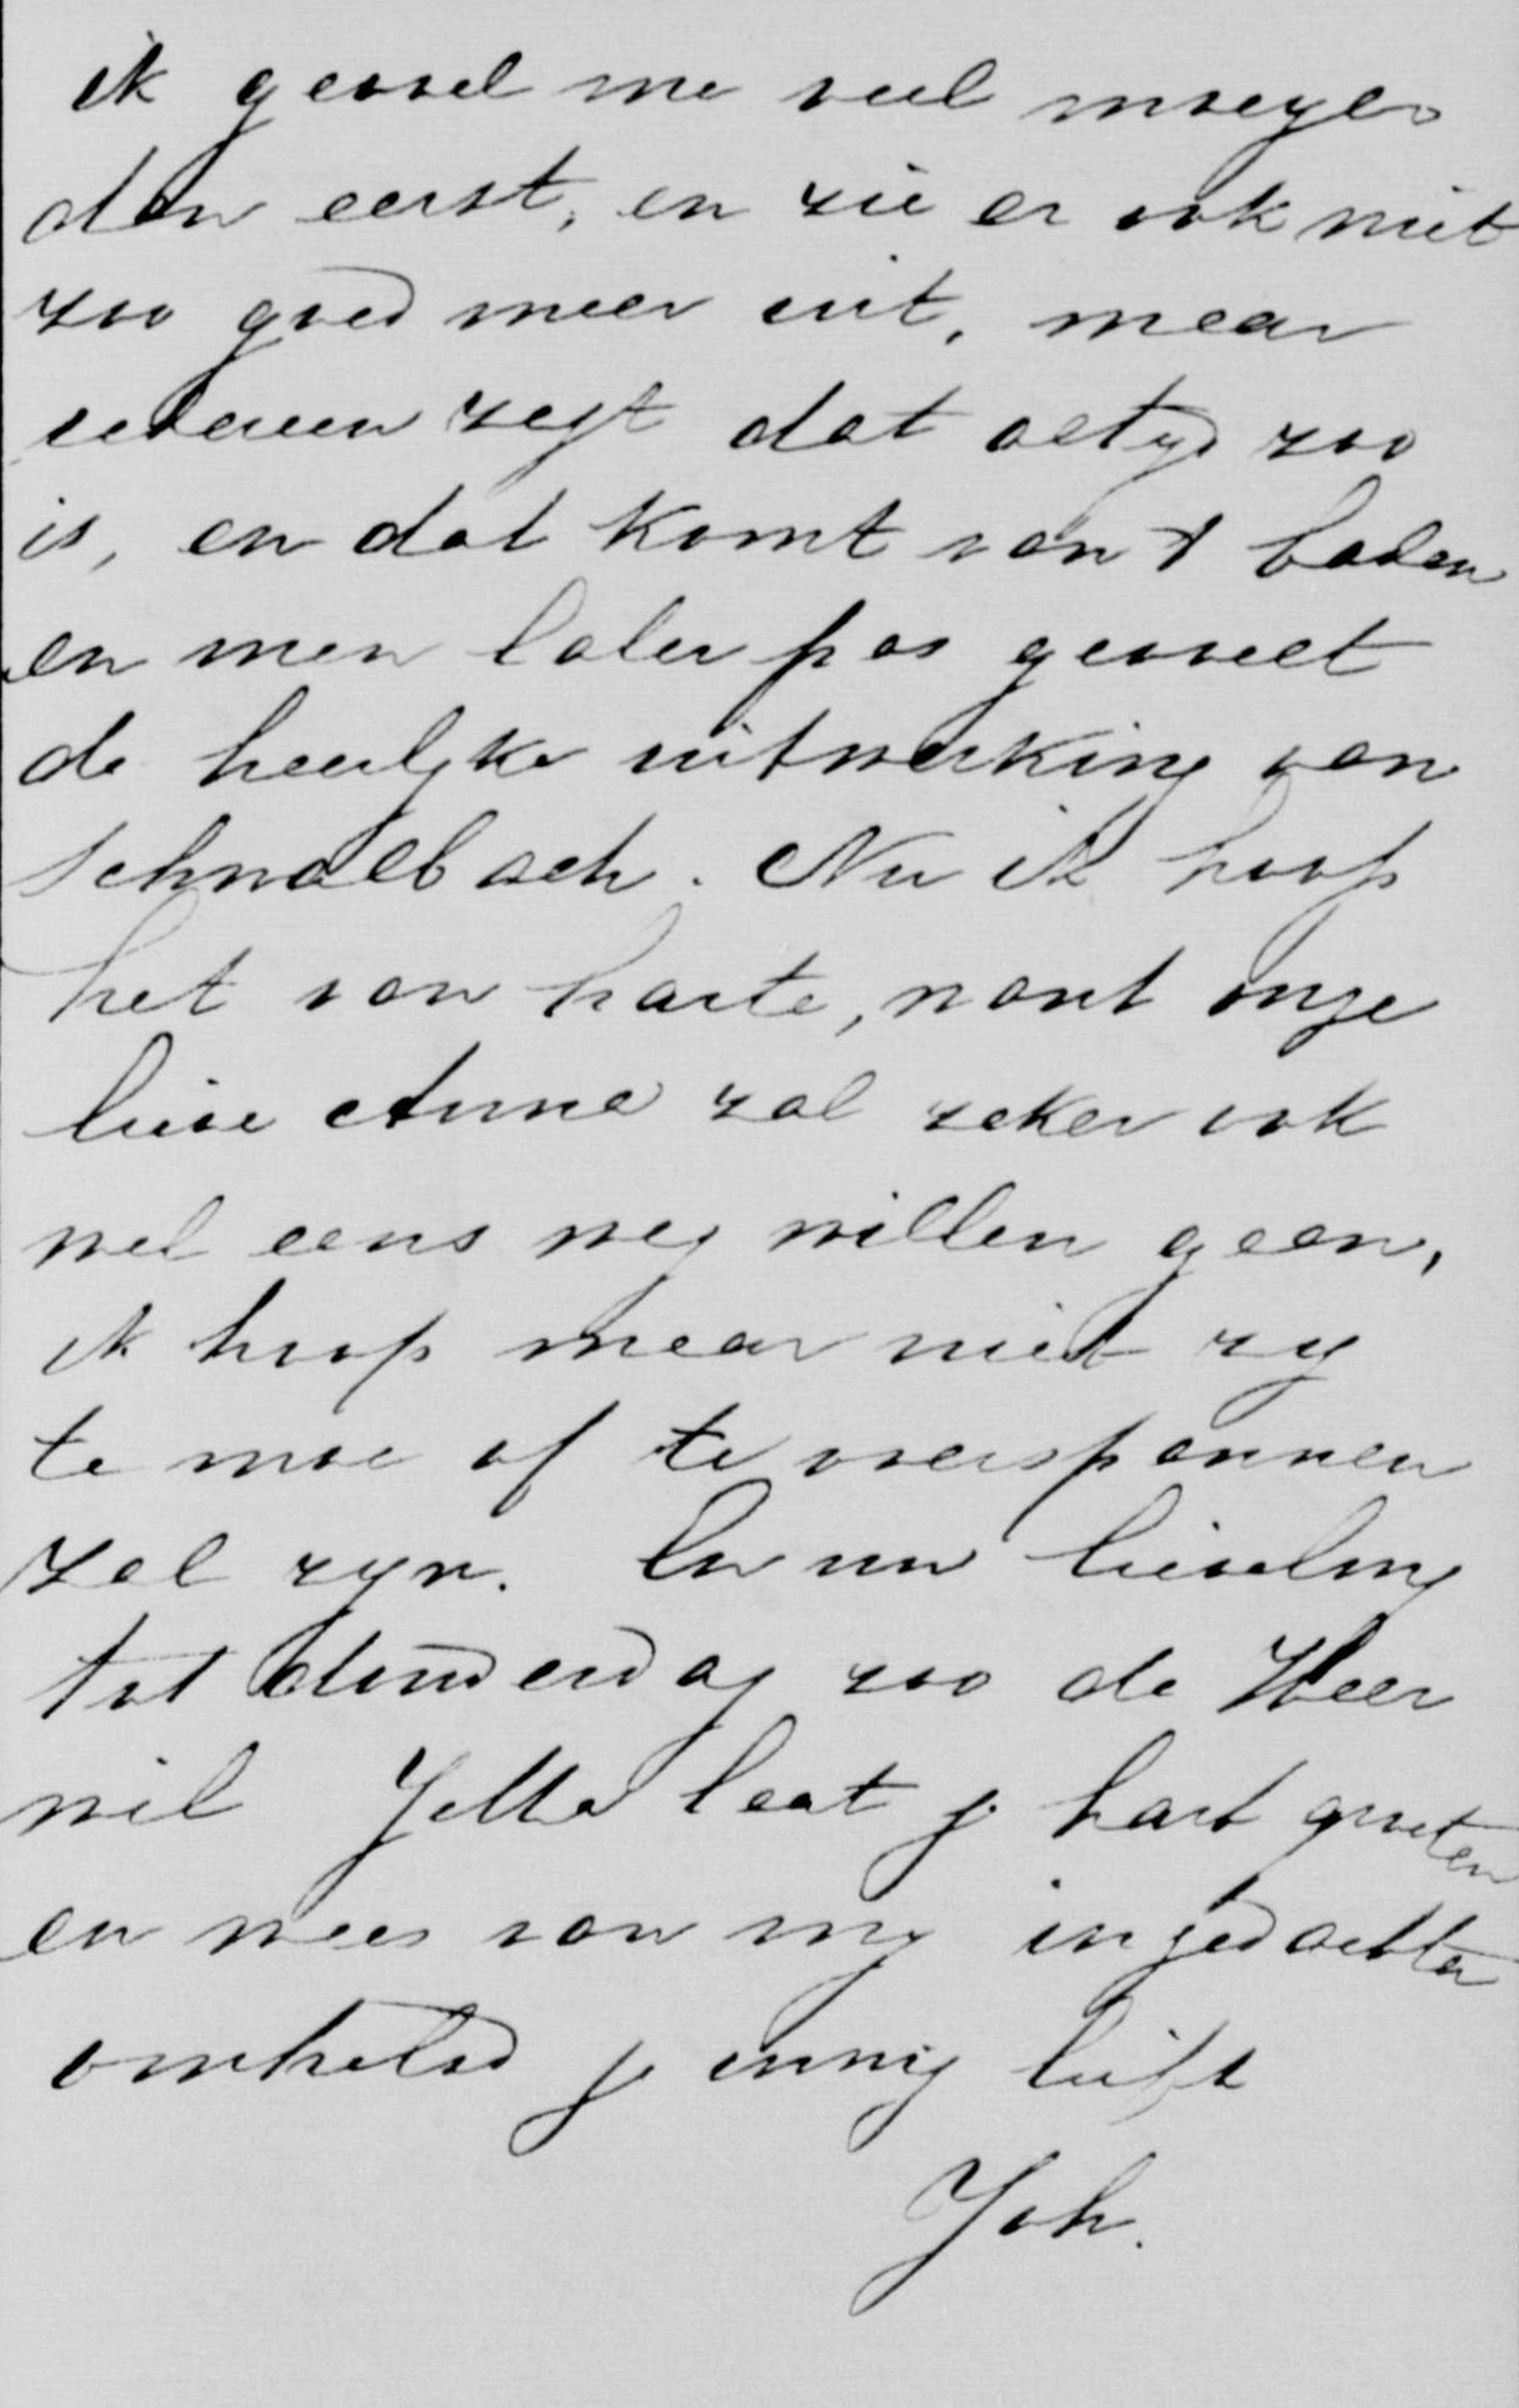 ik gevoel me veel moeyer
dan eerst, en zie er ook niet
zoo goed meer uit, maar
iedereen zegt dat altyd zoo
is, en dat komt van 't baden
en men later pas gevoelt
de heerlyke uitwerking van
Schwalbach. Nu ik hoop
het van harte, want onze
lieve Anna zal zeker ook
wel eens weg willen gaan,
ik hoop maar niet zy
te moe of te overspannen
zal zyn. En nu lieveling
tot donderdag zoo de Heer
wil Jetta laat je hart groeten
en wees van my in gedachten
omhelsd je innig liefh
Joh.